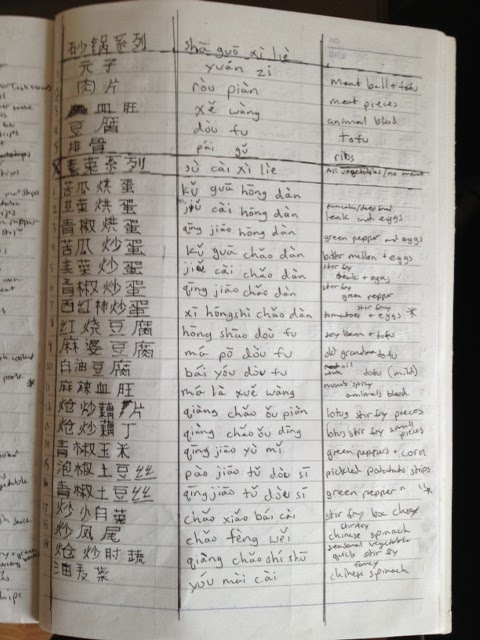 砂锅系列 shā guō xì liè
元子 yuán zi meat ball + tofu
肉片 ròu piàn meat pieces
血旺 xě wàng animal blood
豆腐 dòu fu tofu
排骨 pái gǔ ribs
素菜系列 sù cài xì liè All vegetables/no meat
苦瓜烘蛋 kǔ guā hōng dàn
韭菜烘蛋 jiǔ cài hōng dàn leak and eggs
青椒烘蛋 qīng jiāo hōng dàn green pepper and eggs
苦瓜炒蛋 kǔ guā chǎo dàn bitter mellon + eggs
韭菜炒蛋 jiǔ cài chǎo dàn stir fry leak + eggs
青椒炒蛋 qīng jiāo chǎo dàn stir fry green pepper
西红柿炒蛋 xi hóngshì chǎo dàn stir fry tomatoes + eggs *
红烧豆腐 hōng shāo dòu fu soy bean + tofu
麻婆豆腐 má pō dòu fu old grandma tofu
白油豆腐 bái yóu dòu fu tofu (mild)
麻辣血旺 má là xuě wàng numb spicy animals blood
炝炒藕片 qiàng chǎo ǒu piàn lotus stir fry pieces
炝炒藕丁 qiàng chǎo ǒu dīng lotus stir fry small pieces
青椒玉米 qīng jiāo yù mǐ green peppers + corn
泡椒土豆丝 pào jiāo tǔ dòu sī pickled potatato strips
青椒土豆丝 qīng jiāo tǔ dòu sī green pepper " "*
炒小白菜 chǎo xiǎo bái cài stir fry box choy
炒凤尾 chǎo fèng wěi stir fry chinese spinach
炝炒时蔬 qiàng chǎo shí shū seasonal vegetables quick stir fry
油麦菜 yóu mài cài fancy chinese spinach